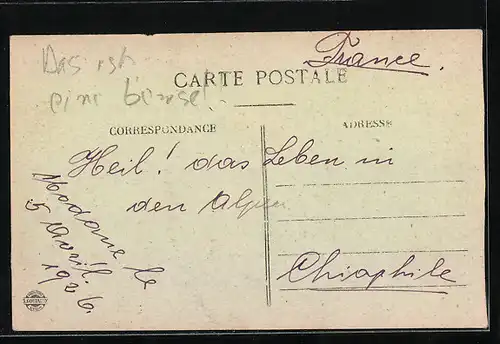 France.
Das ist
eine
CARTE POSTALE
CORRESPONDANCE
ADRESSE
Heil! das Leben in
den Alpen
Chiaphile
Modane le
5 Avril
1926